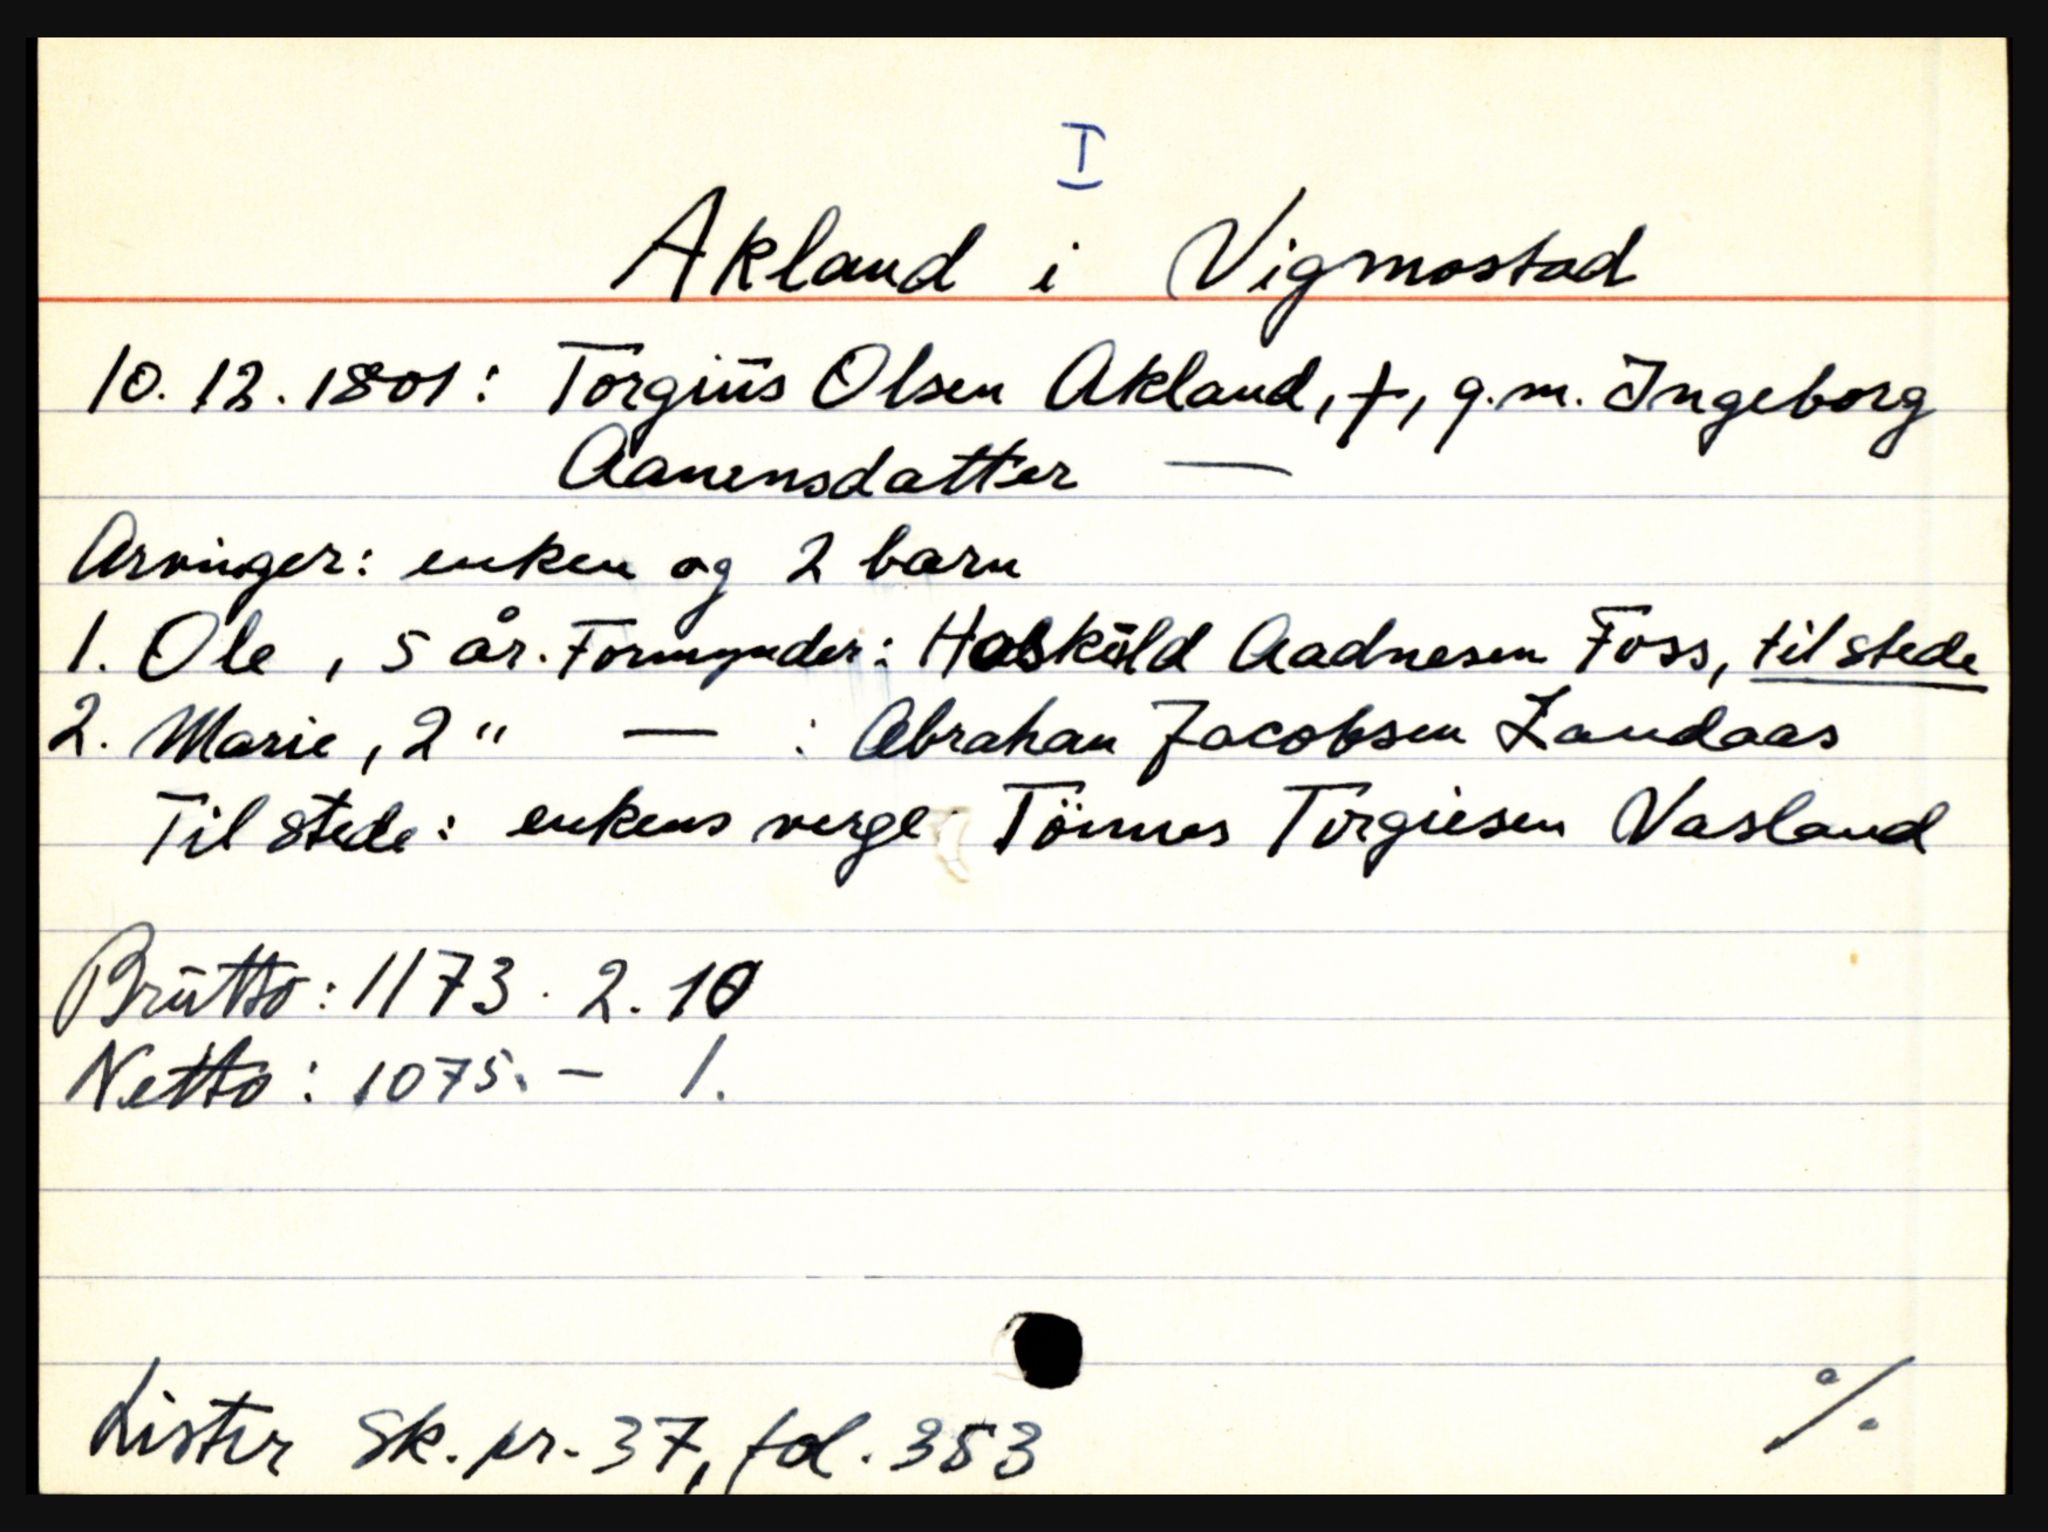 I
Akland i Vigmostad
10.12.1801: Torgiüs Olsen Akland, †, g.m. Ingeborg
Aanensdatter —
Arvinger: enken og 2 barn
1. Ole, 5 år. Formynder: Halskůld Aadnesen Foss, til stede
2. Marie, 2 " — : Abraham Jacobsen Landaas
Til stede: enkens verge Tönnes Torgiesen Vasland
Brütto: 1173. 2. 10
Netto: 1075. - 1.
Lister Sk. pr. 37, fol. 353
%